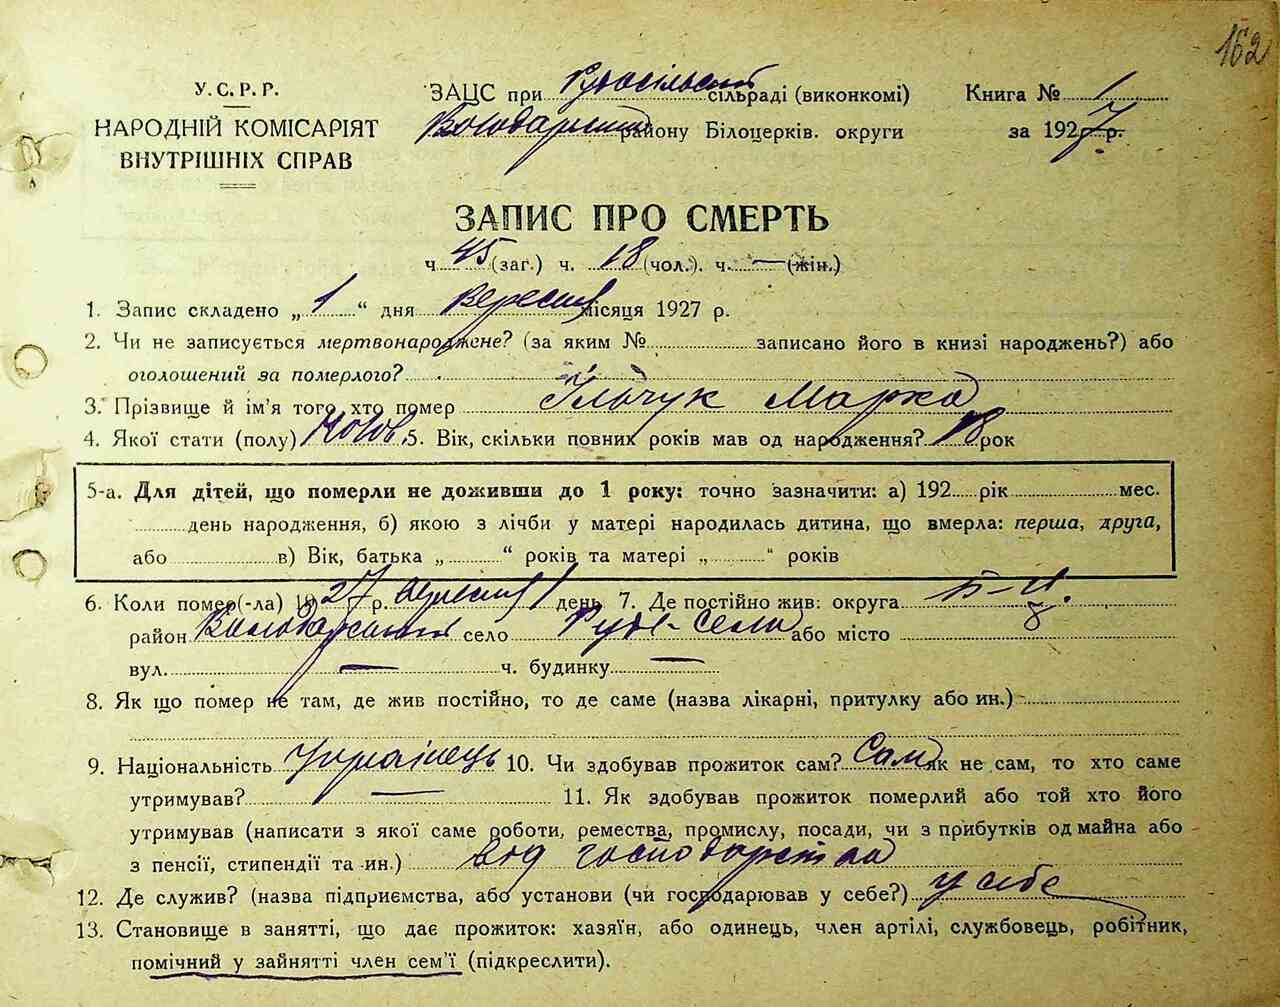 162
У.С.Р.Р.
НАРОДНІЙ КОМІСАРІЯТ
ВНУТРІШНІХ СПРАВ
ЗАЦС при Рудосільській сільраді (виконкомі)
Володарського району Білоцерків. округи
Книга № 1
за 1927 р.
ЗАПИС ПРО СМЕРТЬ
ч. 45 (заг.) ч. 18 (чол.). ч. — (жін.)
1. Запис складено „ 1 “ дня вересня місяця 1927 р.
2. Чи не записується мертвонароджене? (за яким № записано його в книзі народжень?) або
оголошений за померлого?
3. Прізвище й ім'я того, хто помер Ільчук Марко
4. Якої стати (полу) чолов. 5. Вік, скільки повних років мав од народження? 18 рок
5-а. Для дітей, що померли не доживши до 1 року: точно зазначити: а) 192 рік мес.
день народження, б) якою з лічби у матері народилась дитина, що вмерла: перша, друга,
або в) Вік, батька „ “ років та матері „ “ років
6. Коли помер(-ла) 1927 р. вересня 1 день 7. Де постійно жив: округа Б-Ц.
район Володарський село Руде-Село або місто
вул. — ч. будинку —
8. Як що помер не там, де жив постійно, то де саме (назва лікарні, притулку або ин.)
9. Національність Українець 10. Чи здобував прожиток сам? Сам як не сам, то хто саме
утримував? — 11. Як здобував прожиток померлий або той хто його
утримував (написати з якої саме роботи, ремества, промислу, посади, чи з прибутків од майна або
з пенсії, стипендії та ин.) від господарства
12. Де служив? (назва підприємства, або установи (чи господарював у себе?) у себе
13. Становище в занятті, що дає прожиток: хазяїн, або одинець, член артілі, службовець, робітник,
помічний у зайнятті член сем'ї (підкреслити).